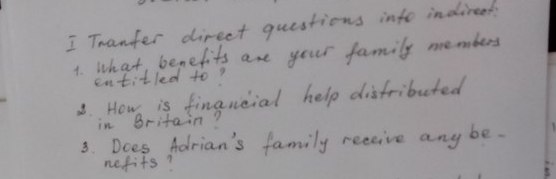 I Tranfer direct questions into indirect:
1. What benefits are your family members
entitled to?
2. How is financial help distributed
in Britain?
3. Does Adrian's family receive any be-
nefits?